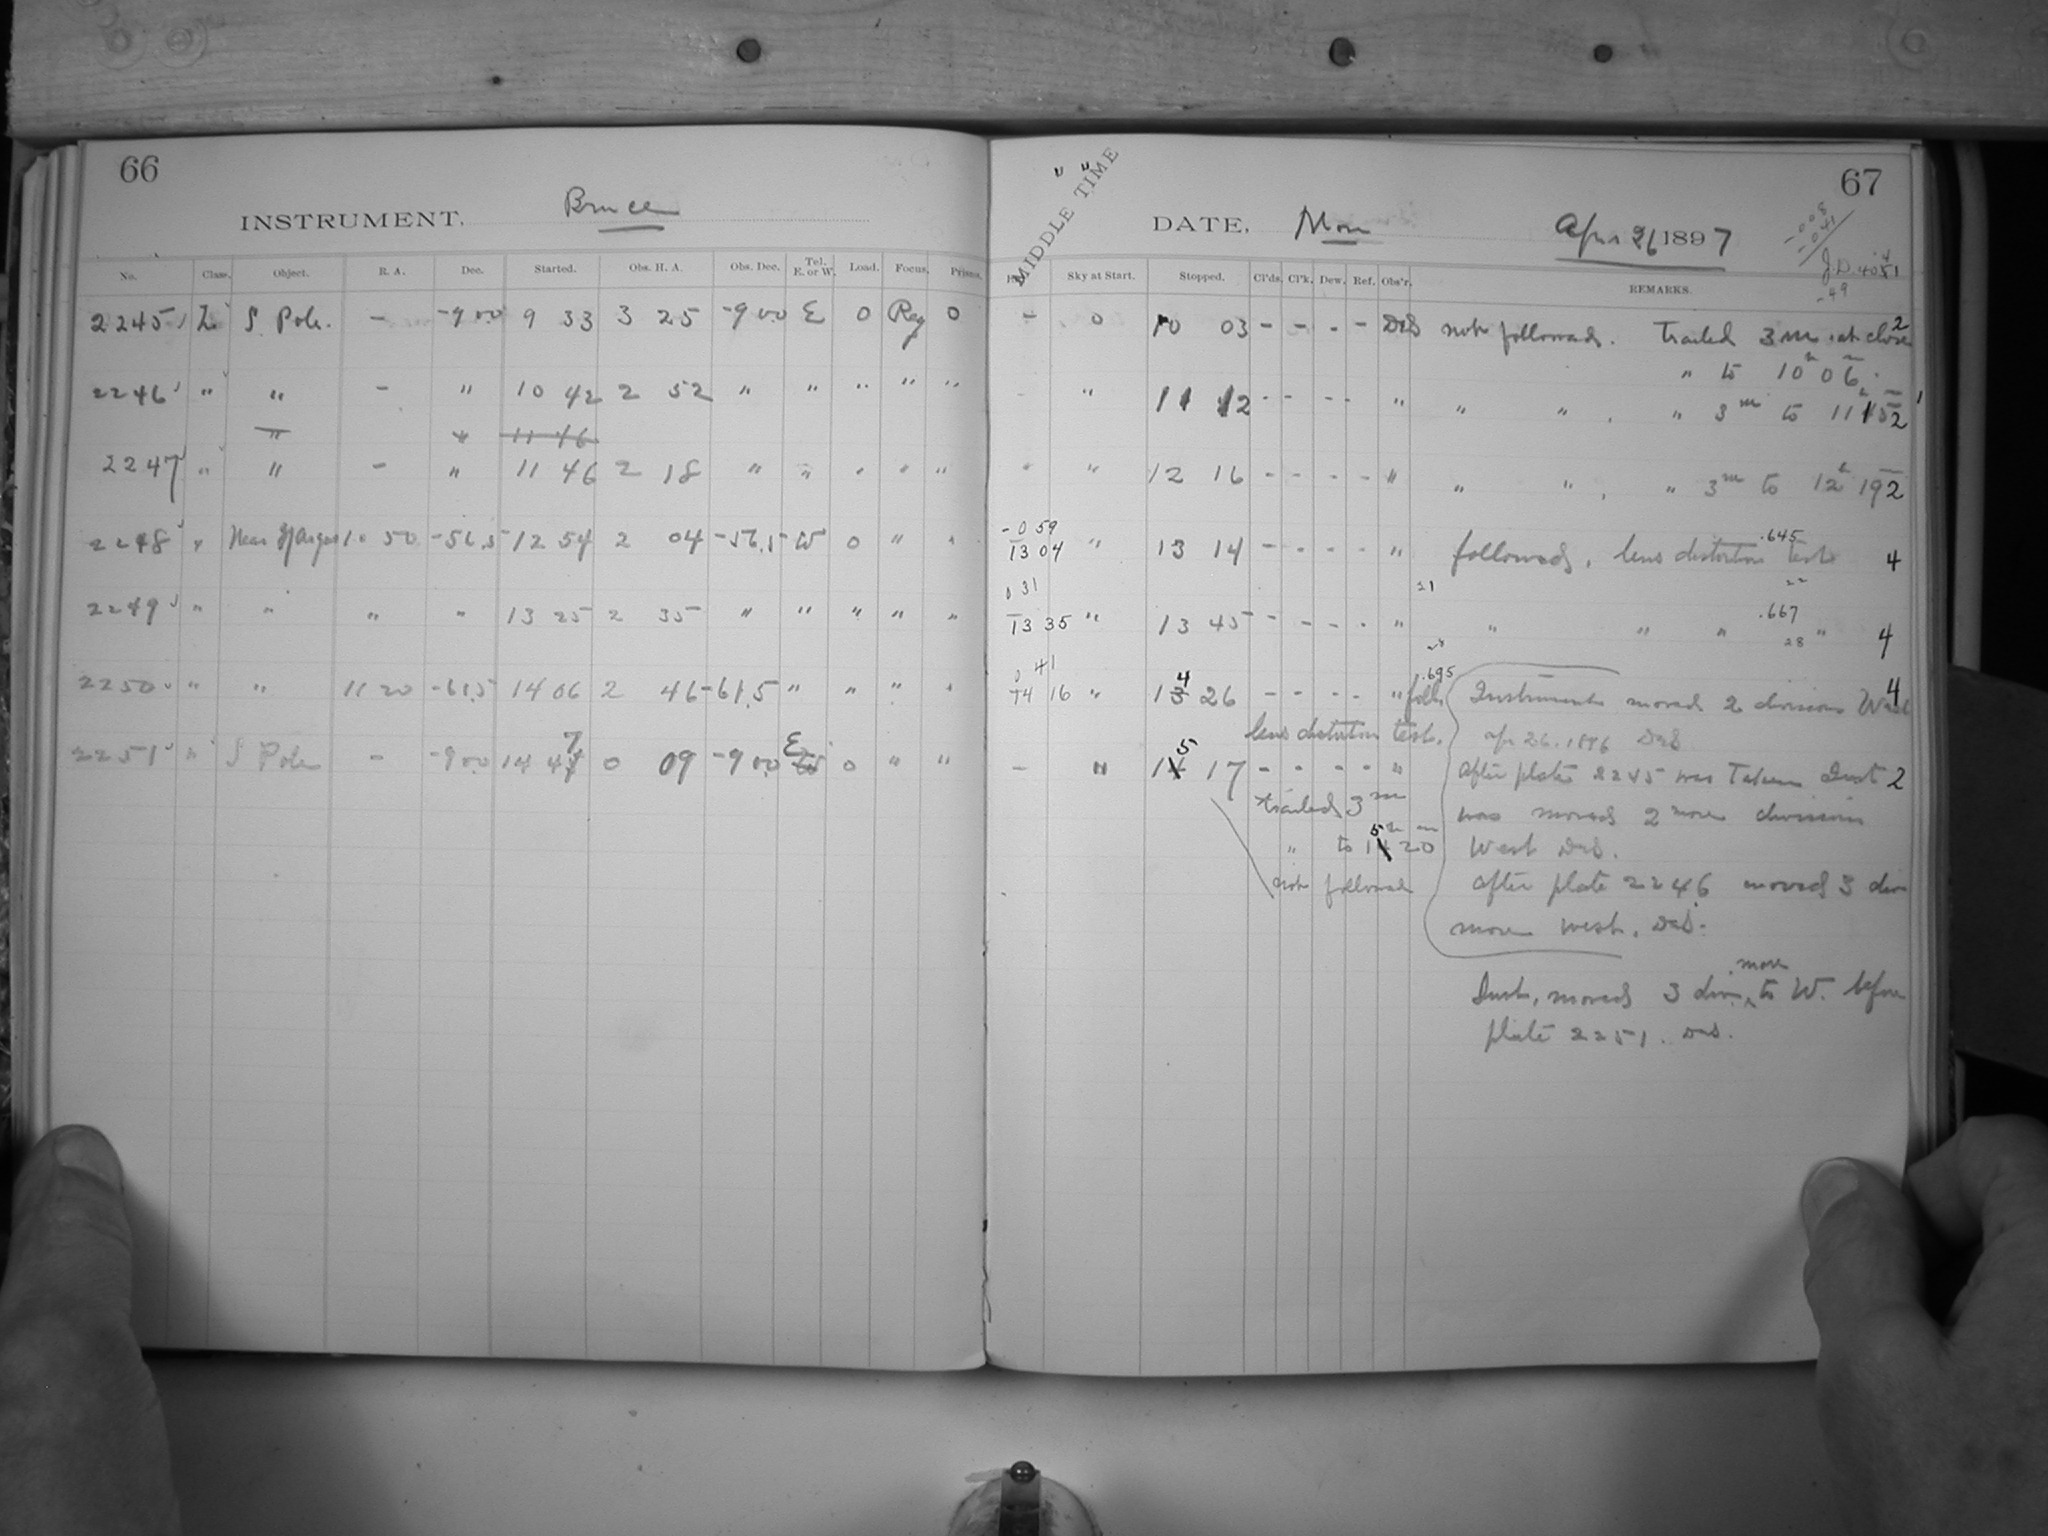 66
INSTRUMENT. Bruce
No. Class. Object. R. A. Dec. Started. Obs. H. A. Obs. Dec. Tel. E. or W. Load. Focus. Prisms.
2245 L S. Pole. - -90.0 9 33 3 25 -90.0 E 0 Reg 0
2246 " " - " 10 42 2 52 " " " " "
" " 11 46
2247 " " - " 11 46 2 18 " " " " "
2248 " Near η Argus 10 50 -56.5 12 54 2 04 -56.5 W 0 " "
2249 " " " " 13 25 2 35 " " " " "
2250 " " 11 20 -61.5 14 06 2 46 -61.5 " " " "
2251 " S Pole - -90.0 14 47 0 09 -90.0 E 0 " "
67
MIDDLE TIME
DATE, Mon Apr 26 1897
J.D. 4041
-49
Sky at Start. Stopped. Cl'ds. Cl'k. Dew. Ref. Obs'r. REMARKS.
- 0 10 03 - - - - not followed. Trailed 3m at close 2
" to 10h 06m.
- " 11 12 - - - - " " " . " 3m to 11h 15m 2
" " 12 16 - - - - " " " . " 3m to 12h 19m 2
-0 59
13 04 " 13 14 - - - - " followed, lens distortion test .645 4
0 31
21
22
13 35 " 13 45 - - - - " " " " " .667 4
28
0 41
14 16 " 14 26 - - - - " foll. .695 4
lens distortion test.
- " 15 17 - - - - " 2
trailed 3m
" to 15h 20m
not followed
Instrument moved 2 divisions West
Apr 26. 1896
After plate 2245 was taken Inst
was moved 2 more divisions
West
After plate 2246 moved 3 div
more west.
Inst. moved 3 div. more to W. before
plate 2251.